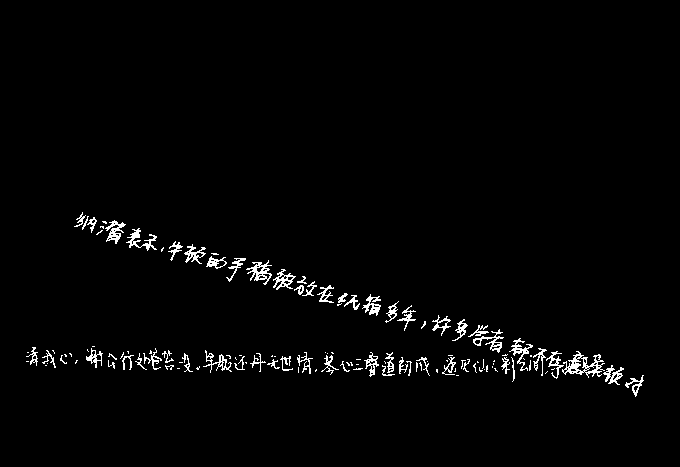 纳潜表示,牛顿的手稿被放在纸箱多年,许多学者都不
清我心,谢公行处苍苔没.早服还丹无世情,琴心三叠道初成.遥见仙人彩云间